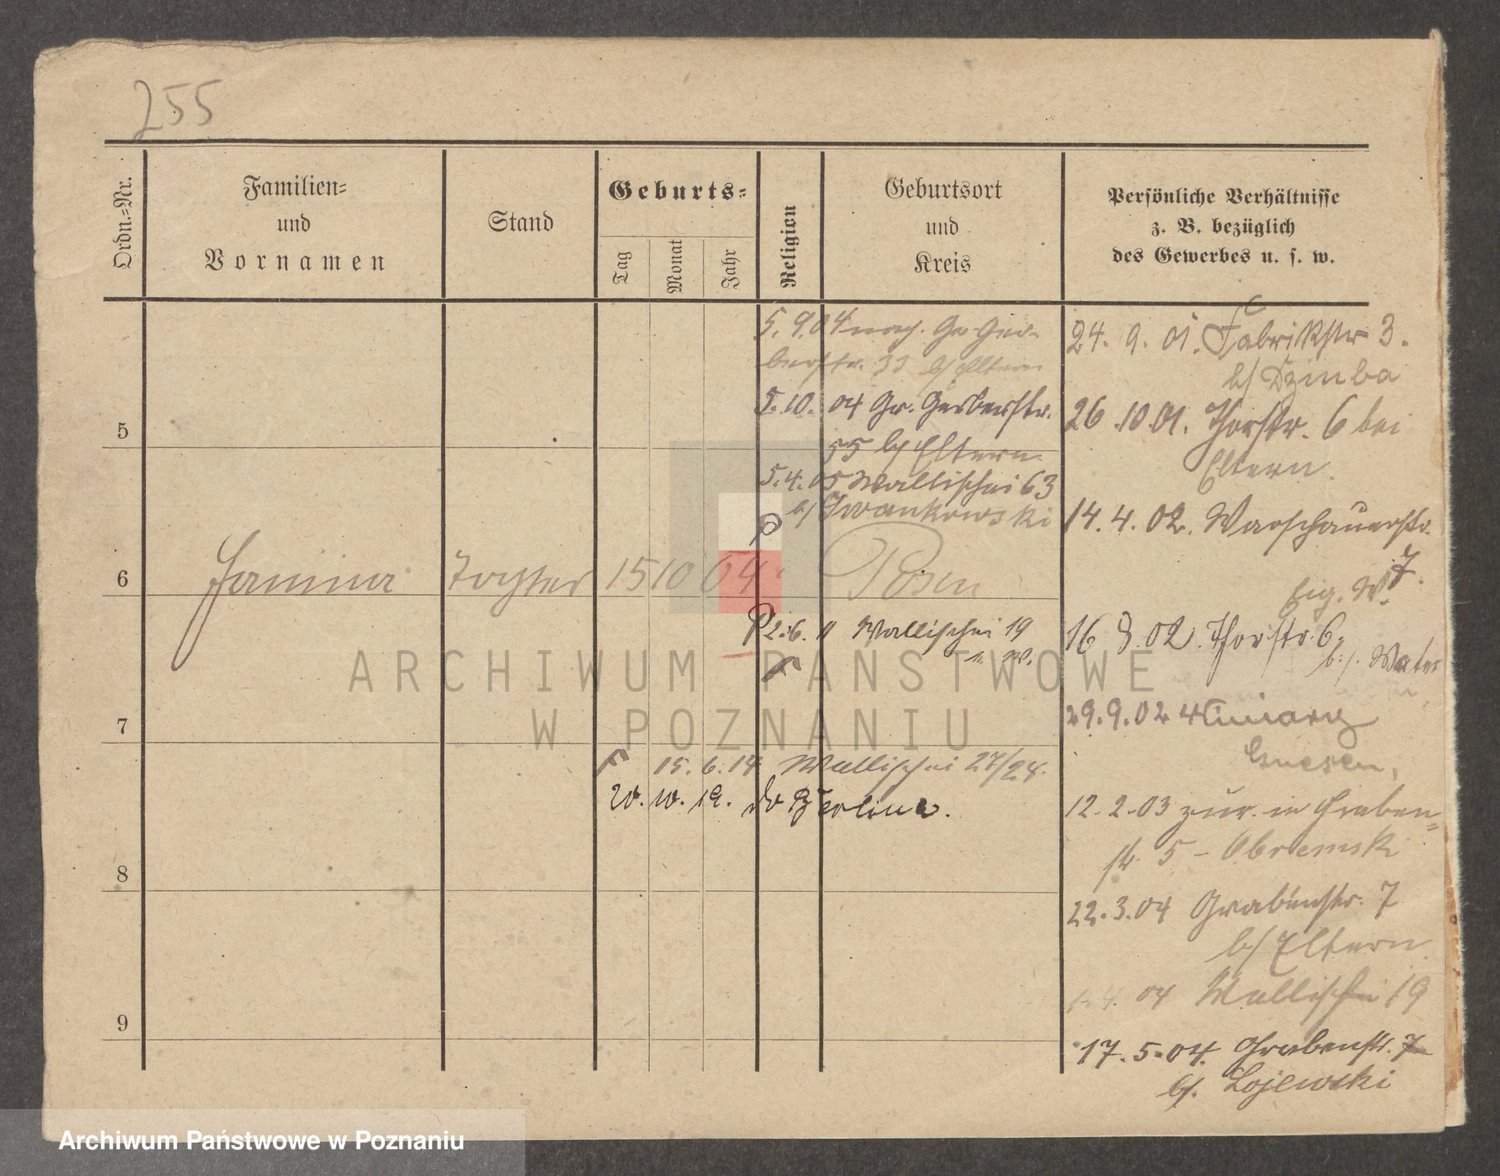 255
Ordn.=Nr.
Familien=
und
Vornamen
Stand
Geburts=
Tag
Monat
Jahr
Religion
Geburtsort
und
Kreis
Persönliche Verhältnisse
z. B. bezüglich
des Gewerbes u. s. w.
5. 9. 04 nach Gr. Ger-
berstr. 33 b/ Eltern
5. 10. 04 Gr. Gerberstr.
55 b/ Eltern
5. 4. 05 Wallischei 63
b/ Iwankowski
5
6
Janina Tochter 15 10 04 Posen
2. 6. 11 Wallischei 19
7
15. 6. 14 Wallischei 27/28.
20. 10. 19.
8
9
24. 9. 01. Fabrikstr 3.
b/ Dzimba
26. 10. 01. Thorstr. 6 bei
Eltern.
14. 4. 02. Warschauerstr.
7.
Eig. W.
16 8. 02. Thorstr. 6.
b./. Vater
29. 9. 02
Gnesen,
12. 2. 03 zur. in Graben=
str. 5 - Obremski
22. 3. 04 Grabenstr. 7
b/ Eltern.
04 Wallischei 19
17. 5. 04. Grabenstr. 7
b/. Lojewski
ARCHIWUM PAŃSTWOWE
W POZNANIU
Archiwum Państwowe w Poznaniu